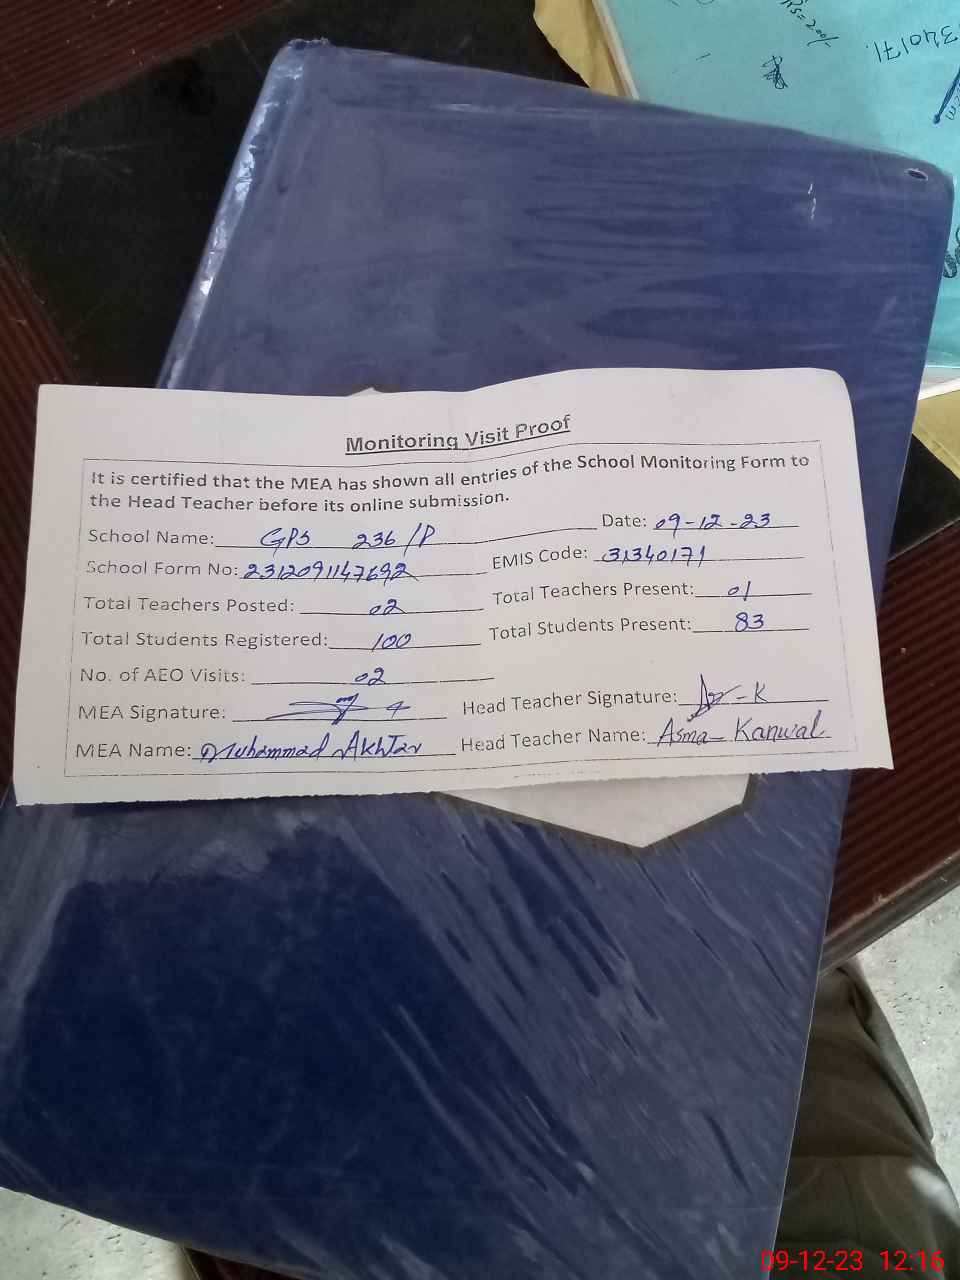 Rs=200/-
340171.
Monitoring Visit Proof
It is certified that the MEA has shown all entries of the School Monitoring Form to
the Head Teacher before its online submission.
School Name: GPS 236/P Date: 09-12-23
School Form No: 2312091147692 EMIS Code: 31340171
Total Teachers Posted: 02 Total Teachers Present: 01
Total Students Registered: 100 Total Students Present: 83
No. of AEO Visits: 02
MEA Signature: Head Teacher Signature: A-K
MEA Name: Muhammad Akhtar Head Teacher Name: Asma Kanwal
09-12-23 12:16